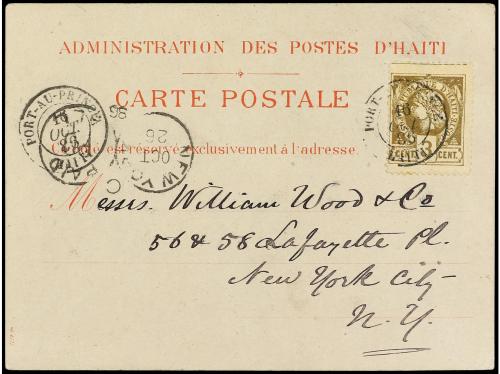 ADMINISTRATION DES POSTES D'HAITI
CARTE POSTALE
PORT-AU-PRINCE
16
OCT
PORT
16
3
CENT.
PAID
NEW YO
26
OCT
Ce côté est réservé exclusivement à l'adresse.
Messrs. William Wood & Co
56 & 58 Lafayette Pl.
New York City
N. Y.